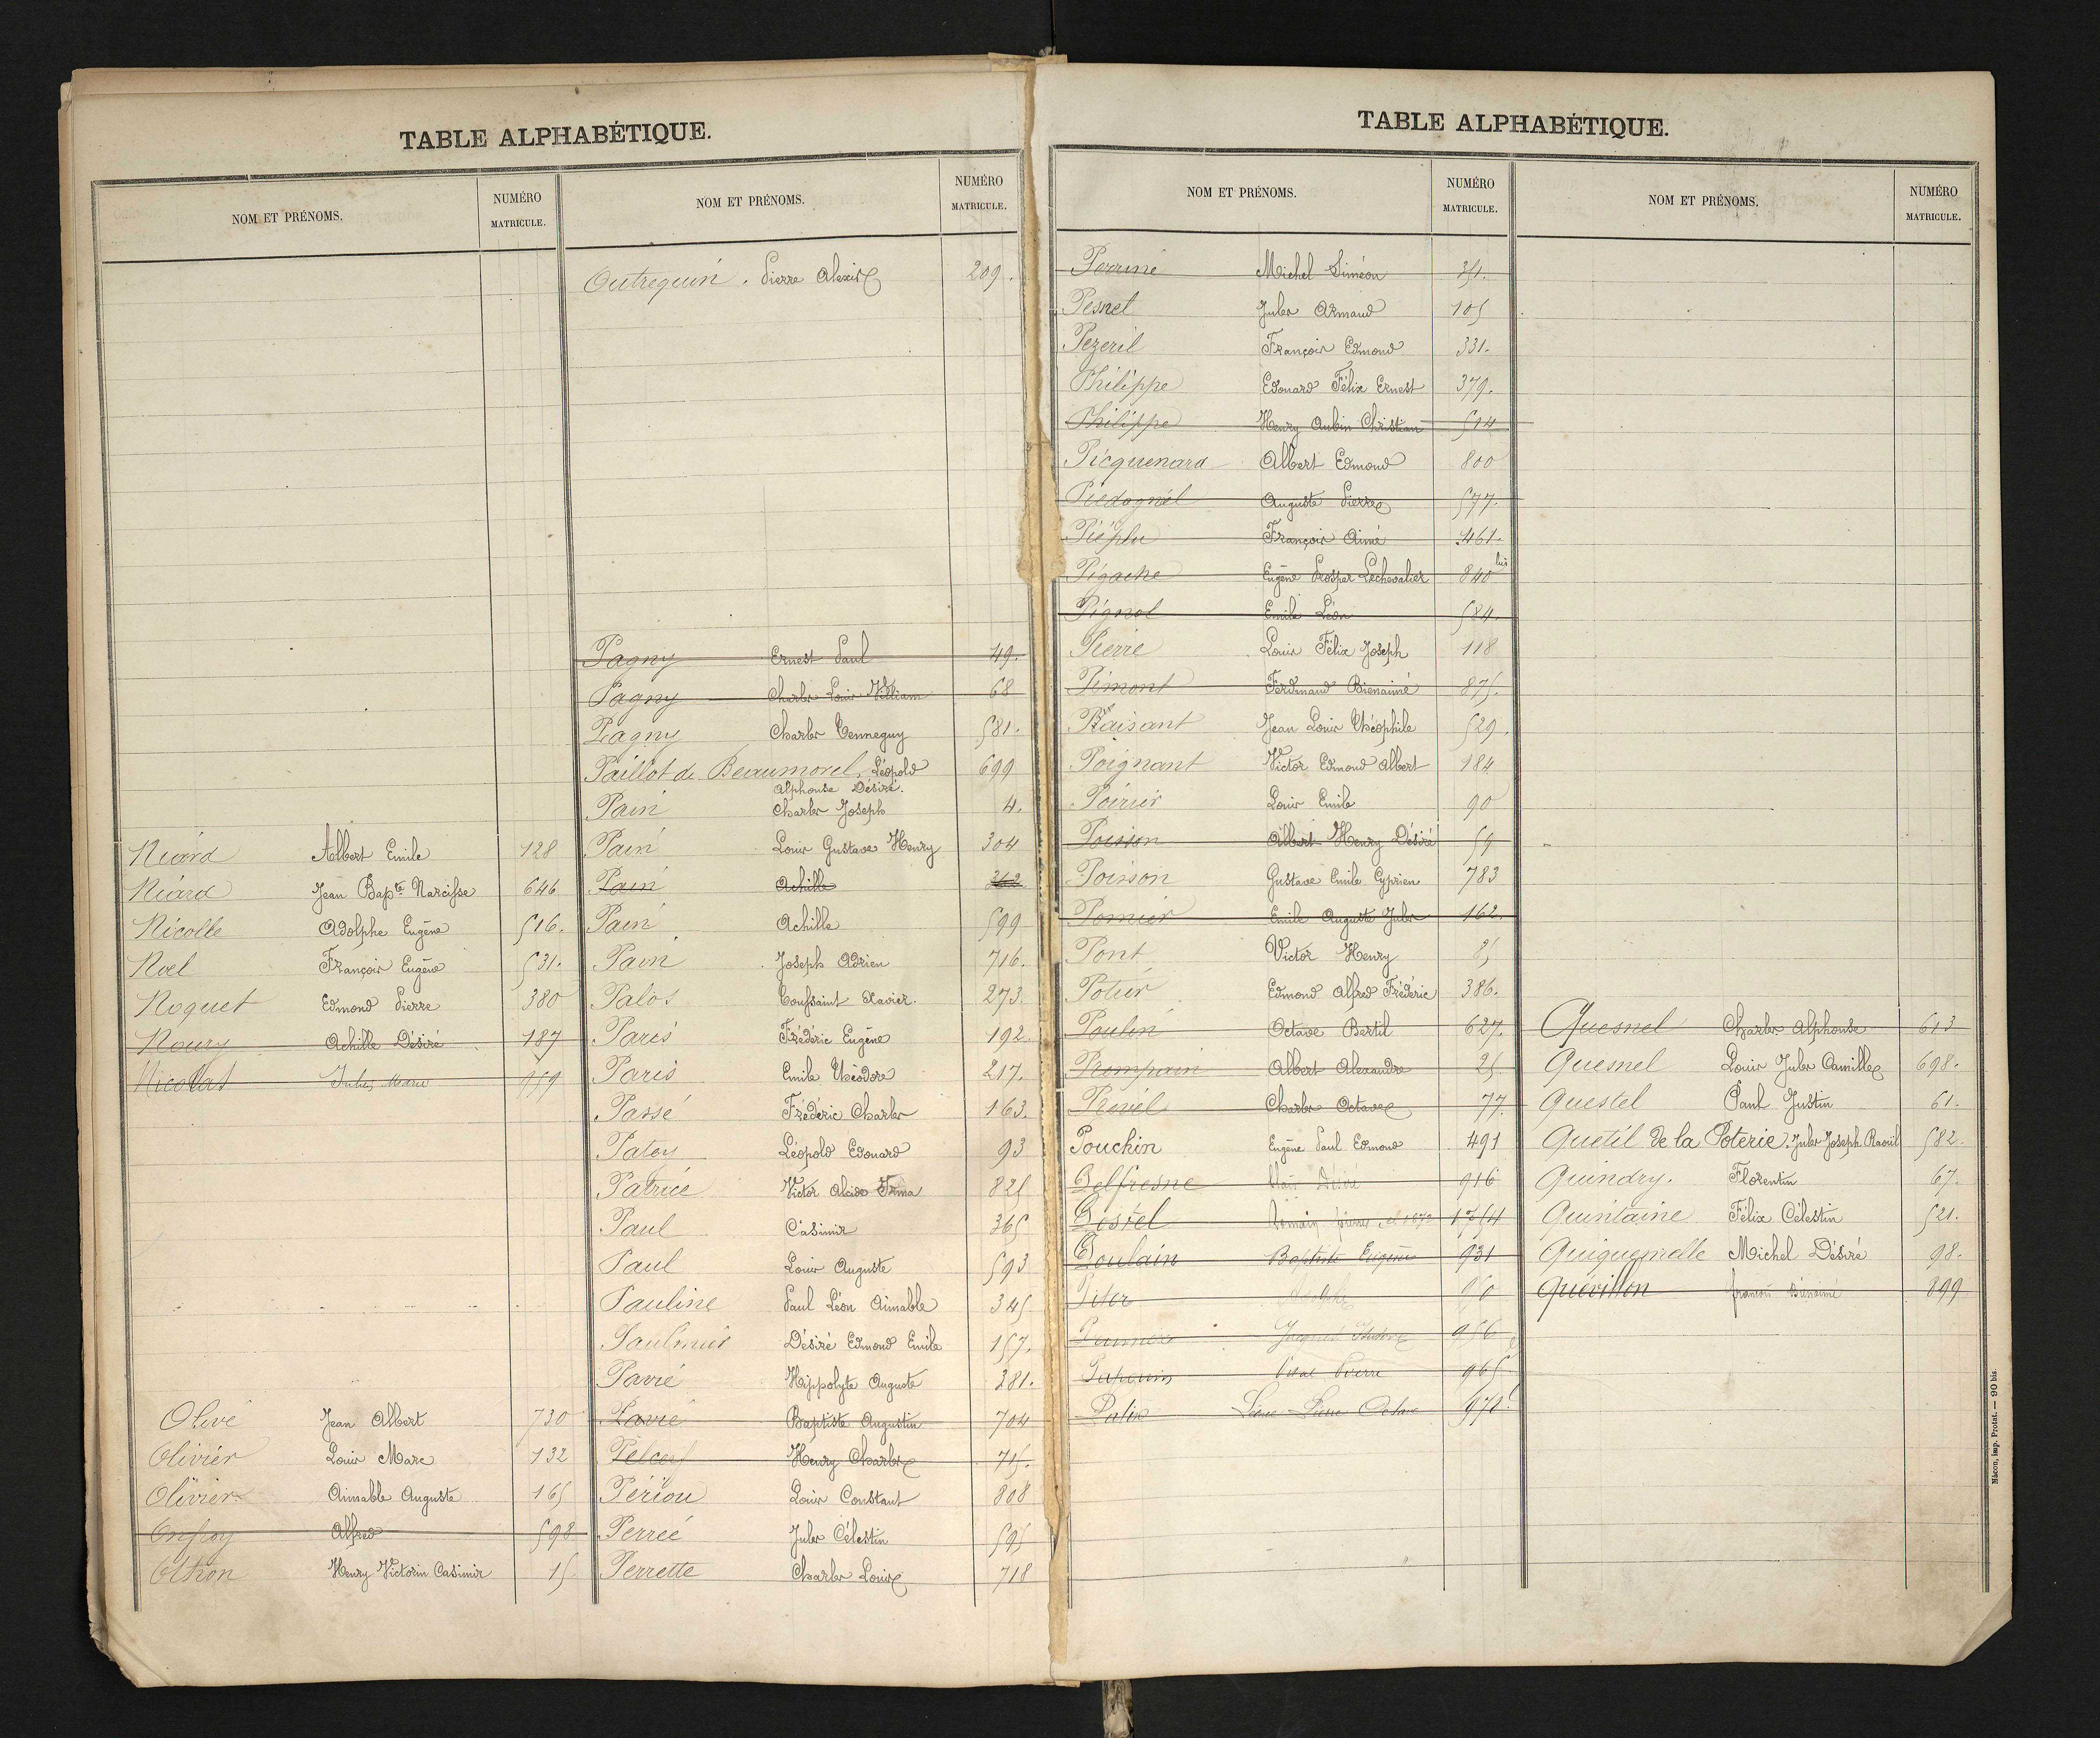 TABLE ALPHABÉTIQUE.
NOM ET PRÉNOMS.
NUMÉRO
MATRICULE.
Niard Albert Emile 128
Niard Jean Bapte Narcisse 646
Nicolle Adolphe Eugène 516.
Noel François Eugène 531.
Noquet Edmond Pierre 380
Noury Achille Désiré 187
Nicollas Jules Marie 959
Olive Jean Albert 730
Olivier Louis Marc 132
Olivier Aimable Auguste 165
Onfroy Alfred 598
Othon Henry Victorin Casimir 15
NOM ET PRÉNOMS.
NUMÉRO
MATRICULE.
Outrequin. Pierre Alexis 209.
Pagny Ernest Paul 49.
Pagny Charles Louis William 68
Pagny Charles Tenneguy 581.
Paillot de Beaumorel, Léopold 699
Alphonse Désiré.
Pain Charles Joseph 4.
Pain Louis Gustave Henry 304
Pain Achille 362
Pain Achille 599
Pain Joseph Adrien 716.
Palos Toussaint Xavier. 273.
Paris Frédéric Eugène 192.
Paris Emile Théodore 217.
Passé Frédéric Charles 163.
Patey Léopold Edouard 93
Patrice Victor Alcide Irma 825
Paul Casimir 365
Paul Louis Auguste 593
Pauline Paul Léon Aimable 345
Paulmier Désiré Edmond Emile 157.
Pavie Hippolyte Auguste 381.
Pavie Baptiste Augustin 704
Pelcerf Henry Charles 715.
Périou Louis Constant 808
Perrée Jules Célestin 595
Perrette Charles Louis 718
TABLE ALPHABÉTIQUE.
NOM ET PRÉNOMS.
NUMÉRO
MATRICULE.
Perrine Michel Siméon 351.
Pesnel Jules Armand 105
Pezeril François Edmond 331.
Philippe Edouard Félix Ernest 379.
Philippe Henry Aubin Christian 514
Picquenard Albert Edmond 800
Piedagnel Auguste Pierre 577.
Piéplu François Aimé 461.
Pigache Eugène Prosper Lechevalier 840 bis
Pignol Emile Léon 584.
Pierre Louis Félix Joseph 118
Pimont Ferdinand Bienaimé 875.
Plaisant Jean Louis Théophile 529.
Poignant Victor Edmond Albert 184
Poirier Louis Emile 90
Poisson Albert Henry Désiré 59
Poisson Gustave Emile Cyprien 783
Pomier Emile Auguste Jules 162.
Pont Victor Henry 85
Potier Edmond Alfred Frédéric 386.
Poulin Octave Bertil 627.
Prompain Albert Alexandre 25
Prével Charles Octave 77.
Pouchin Eugène Paul Edmond 491
Pelfresne Désiré 916
Postel Romain Pierre 1754
Poulain Baptiste Eugène 931
Piter Adolphe
Jacques 956
Pierre 965
Patin Pierre Octave 972
NOM ET PRÉNOMS.
NUMÉRO
MATRICULE.
Quesnel Charles Alphonse 613
Quesnel Louis Jules Camille 698.
Questel Paul Justin 61.
Quetil de la Poterie. Jules Joseph Raoul 582.
Quindry. Florentin 67.
Quintaine Félix Célestin 521.
Quiquemelle Michel Désiré 98.
Quévillon François Bienaimé 899
Mâcon, imp. Protat. — 90 bis